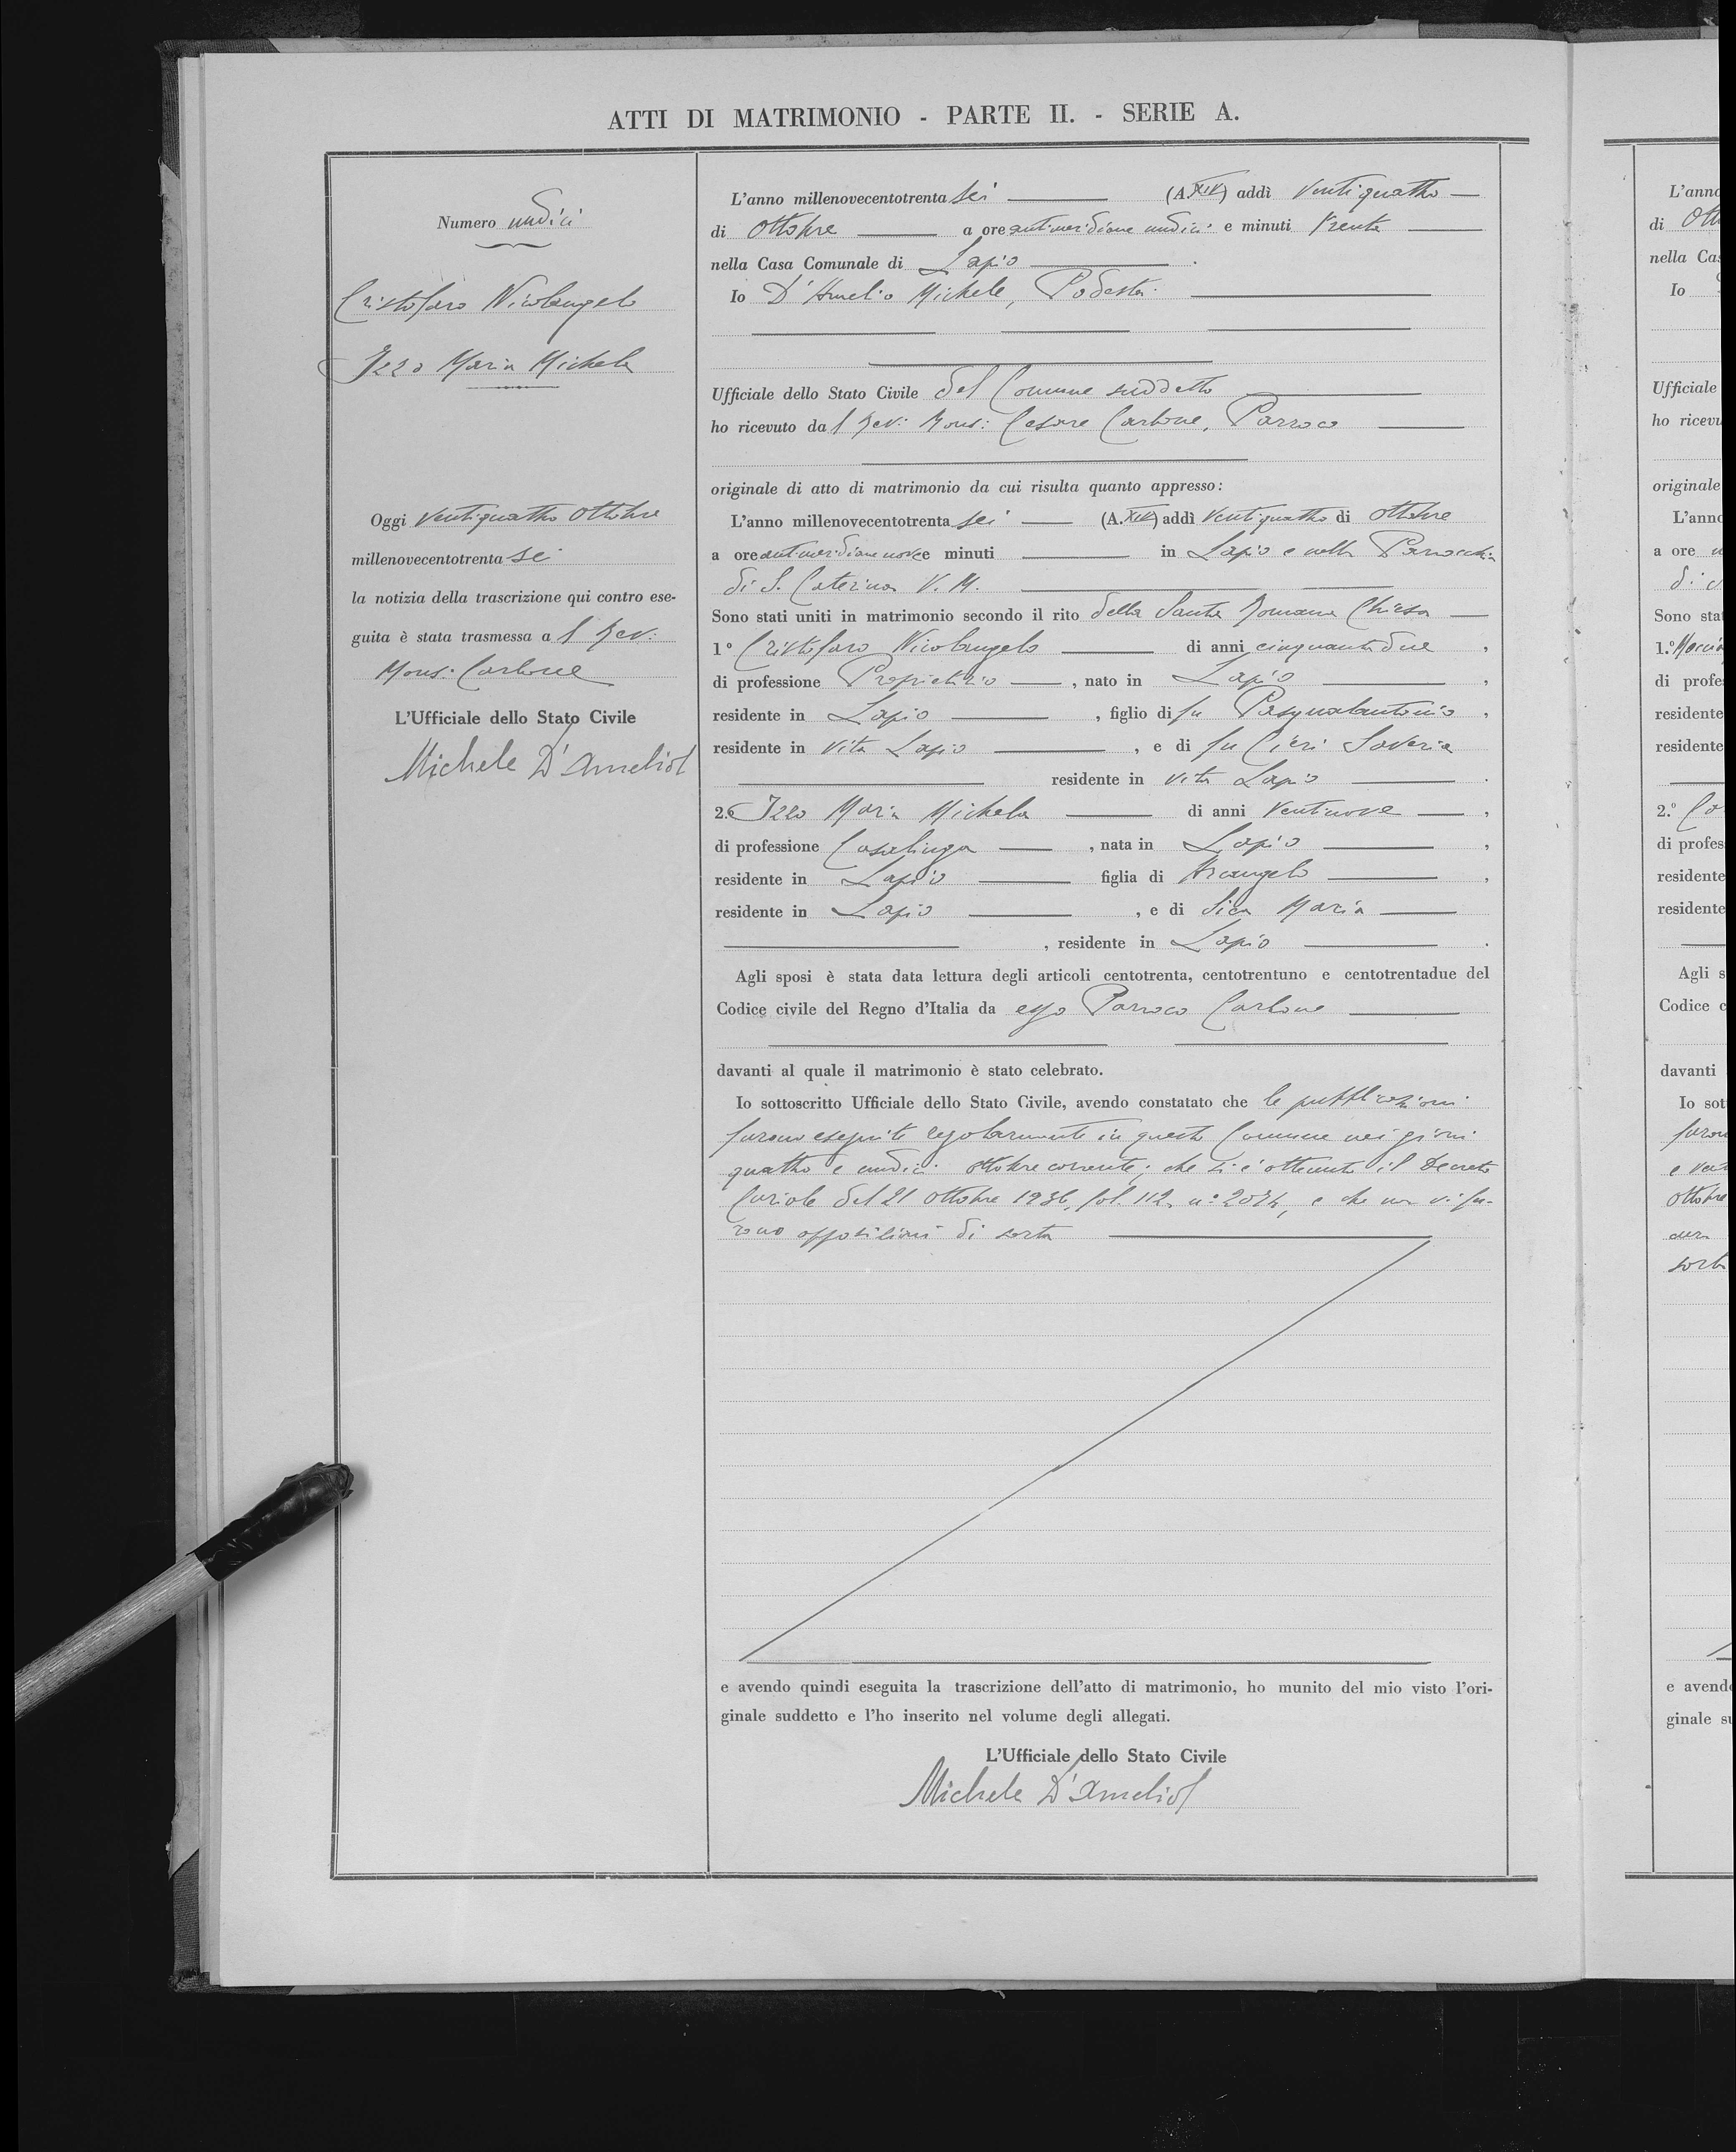 ATTI DI MATRIMONIO - PARTE II. - SERIE A.
Numero undici
Cristofaro Nicolangelo
Izzo Maria Michela
Oggi ventiquattro ottobre
millenovecentotrenta sei
la notizia della trascrizione qui contro ese-
guita è stata trasmessa a l Rev:
Mons: Carbone
L'Ufficiale dello Stato Civile
Michele D'Amelio
L'anno millenovecentotrenta sei (A. XIV) addì ventiquattro
di ottobre a ore antimeridiane undici e minuti trenta
nella Casa Comunale di Lapio.
Io D'Amelio Michele, Podestà
Ufficiale dello Stato Civile del Comune suddetto
ho ricevuto da l Rev: Mons: Cesare Carbone, Parroco
originale di atto di matrimonio da cui risulta quanto appresso:
L'anno millenovecentotrenta sei (A. XIV) addì ventiquattro di ottobre
a ore antimeridiane nove e minuti in Lapio e nella Parrocchia
di S. Caterina V. M.
Sono stati uniti in matrimonio secondo il rito della Santa Romana Chiesa
1° Cristofaro Nicolangelo di anni cinquantadue,
di professione Proprietario, nato in Lapio,
residente in Lapio, figlio di fu Pasqualantonio,
residente in vita Lapio, e di fu Cieri Saveria
residente in vita Lapio.
2.° Izzo Maria Michela di anni ventinove,
di professione Casalinga, nata in Lapio,
residente in Lapio figlia di Arcangelo,
residente in Lapio, e di Sica Maria
, residente in Lapio.
Agli sposi è stata data lettura degli articoli centotrenta, centotrentuno e centotrentadue del
Codice civile del Regno d'Italia da esso Parroco Carbone
davanti al quale il matrimonio è stato celebrato.
Io sottoscritto Ufficiale dello Stato Civile, avendo constatato che le pubblicazioni
furono eseguite regolarmente in questo Comune nei giorni
quattro e undici ottobre corrente; che si è ottenuto il Decreto
Curiale del 21 ottobre 1936, fol. 112, n: 2034, e che non vi fu-
rono opposizioni di sorta
e avendo quindi eseguita la trascrizione dell'atto di matrimonio, ho munito del mio visto l'ori-
ginale suddetto e l'ho inserito nel volume degli allegati.
L'Ufficiale dello Stato Civile
Michele D'Amelio
L'anno
di Ott
nella Cas
Io
Ufficiale
ho ricevu
originale
L'anno
a ore
Sono stat
1.°
di profes
residente
residente
2.° Co
di profes
residente
residente
Agli s
Codice c
davanti
Io sott
furon
ottobre
sorta
e avendo
ginale su